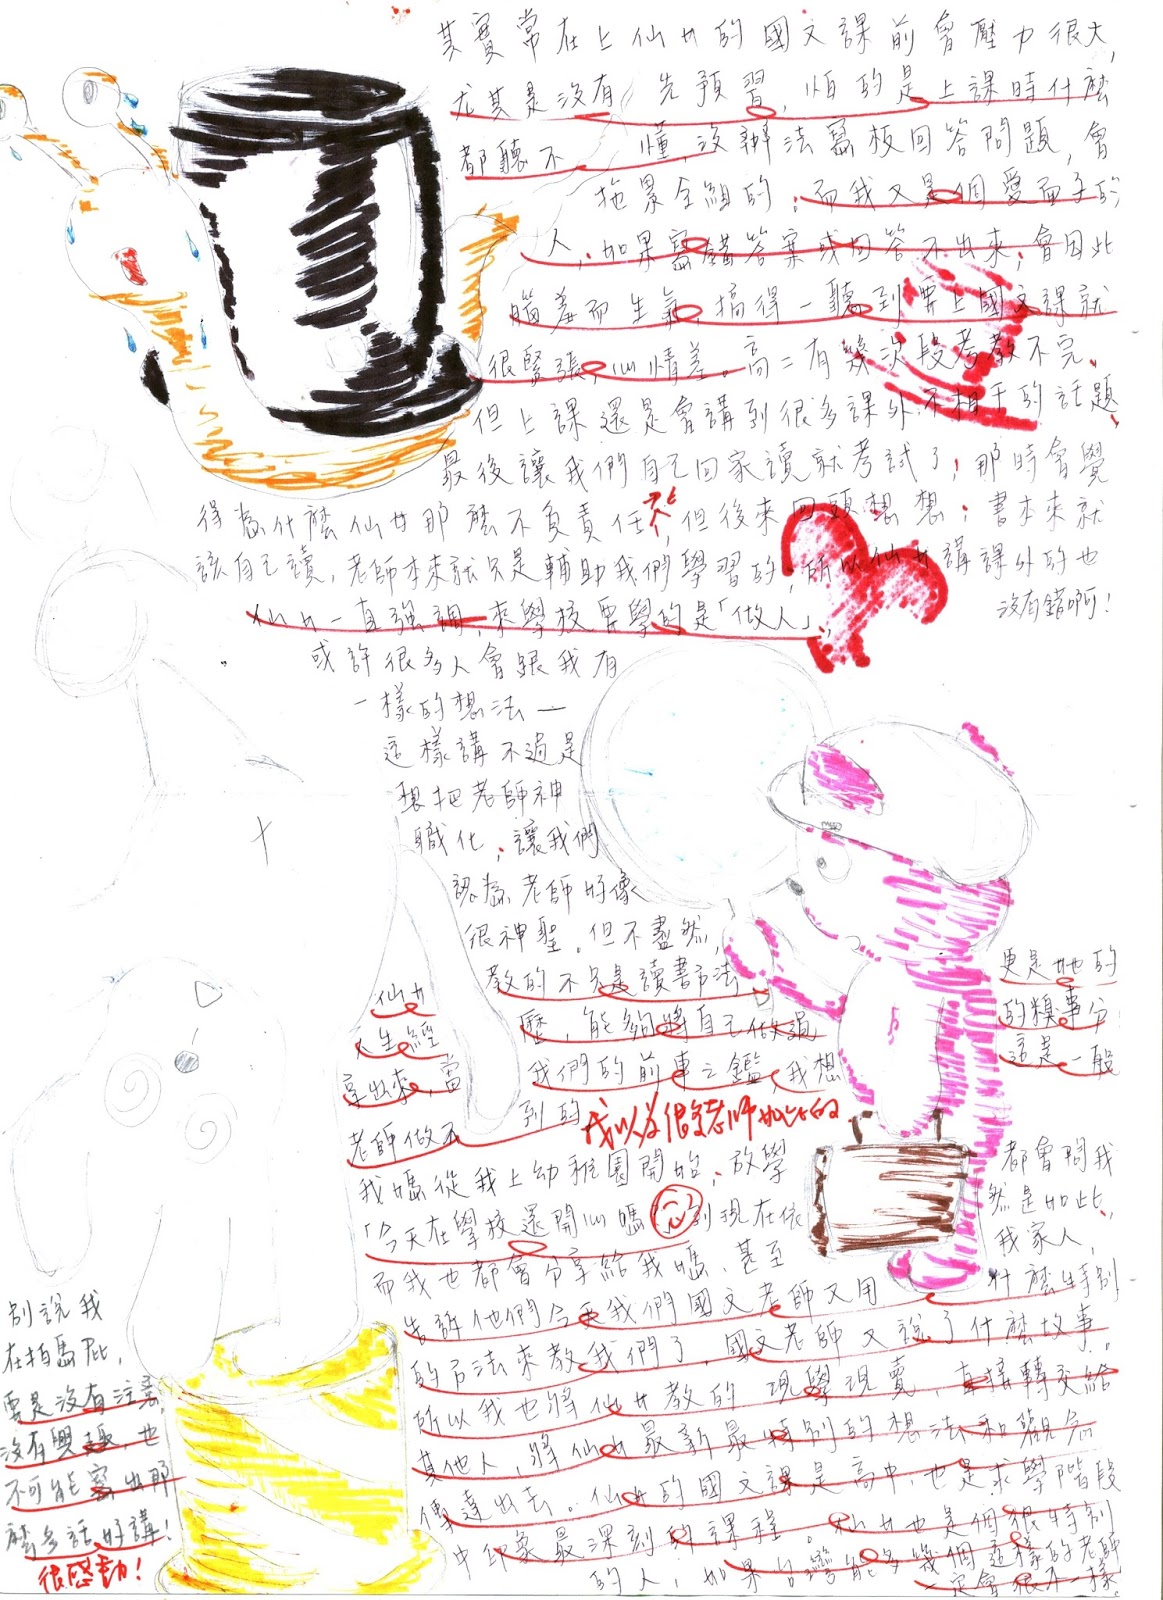 其實常在上仙女的國文課前會壓力很大,
尤其是沒有先預習,怕的是上課時什麼
都聽不懂,沒辦法寫板回答問題,會
拖累全組的,而我又是個愛面子的
人,如果寫錯答案或回答不出來,會因此
惱羞而生氣,搞得一聽到要上國文課就
很緊張,心情差。高二有幾次段考教不完、
但上課還是會講到很多課外不相干的話題
最後讓我們自己回家讀就考試了,那時會覺
得為什麼仙女那麼不負責任,但後來回頭想想,書本來就
該自己讀,老師本來就只是輔助我們學習的,所以仙女講課外的也
沒有錯啊!
仙女一直強調,來學校要學的是「做人」,
或許很多人會跟我有
一樣的想法—
這樣講不過是
想把老師神
職化,讓我們
認為老師好像
很神聖。但不盡然,
仙女教的不只是讀書方法更是她的
人生經歷,能夠將自己做過的糗事分
享出來,當我們的前車之鑑,我想這是一般
老師做不到的
我以為很多老師如此的
我媽從我上幼稚園開始,放學都會問我
「今天在學校還開心嗎 到現在依然是如此,
而我也都會分享給我媽、甚至我家人,
告訴他們今天我們國文老師又用什麼特別
的方法來教我們了,國文老師又說了什麼故事。
所以我也將仙女教的現學現賣、直接轉交給
其他人,將仙女最新最特別的想法和觀念
傳達出去。仙女的國文課是高中,也是求學階段
中印象最深刻的課程。仙女也是個很特別
的人,如果台灣能多幾個這樣的老師
一定會很不一樣。
別說我
在拍馬屁,
要是沒有注意
沒有興趣也
不可能寫出那
麼多話好講!
很感動!